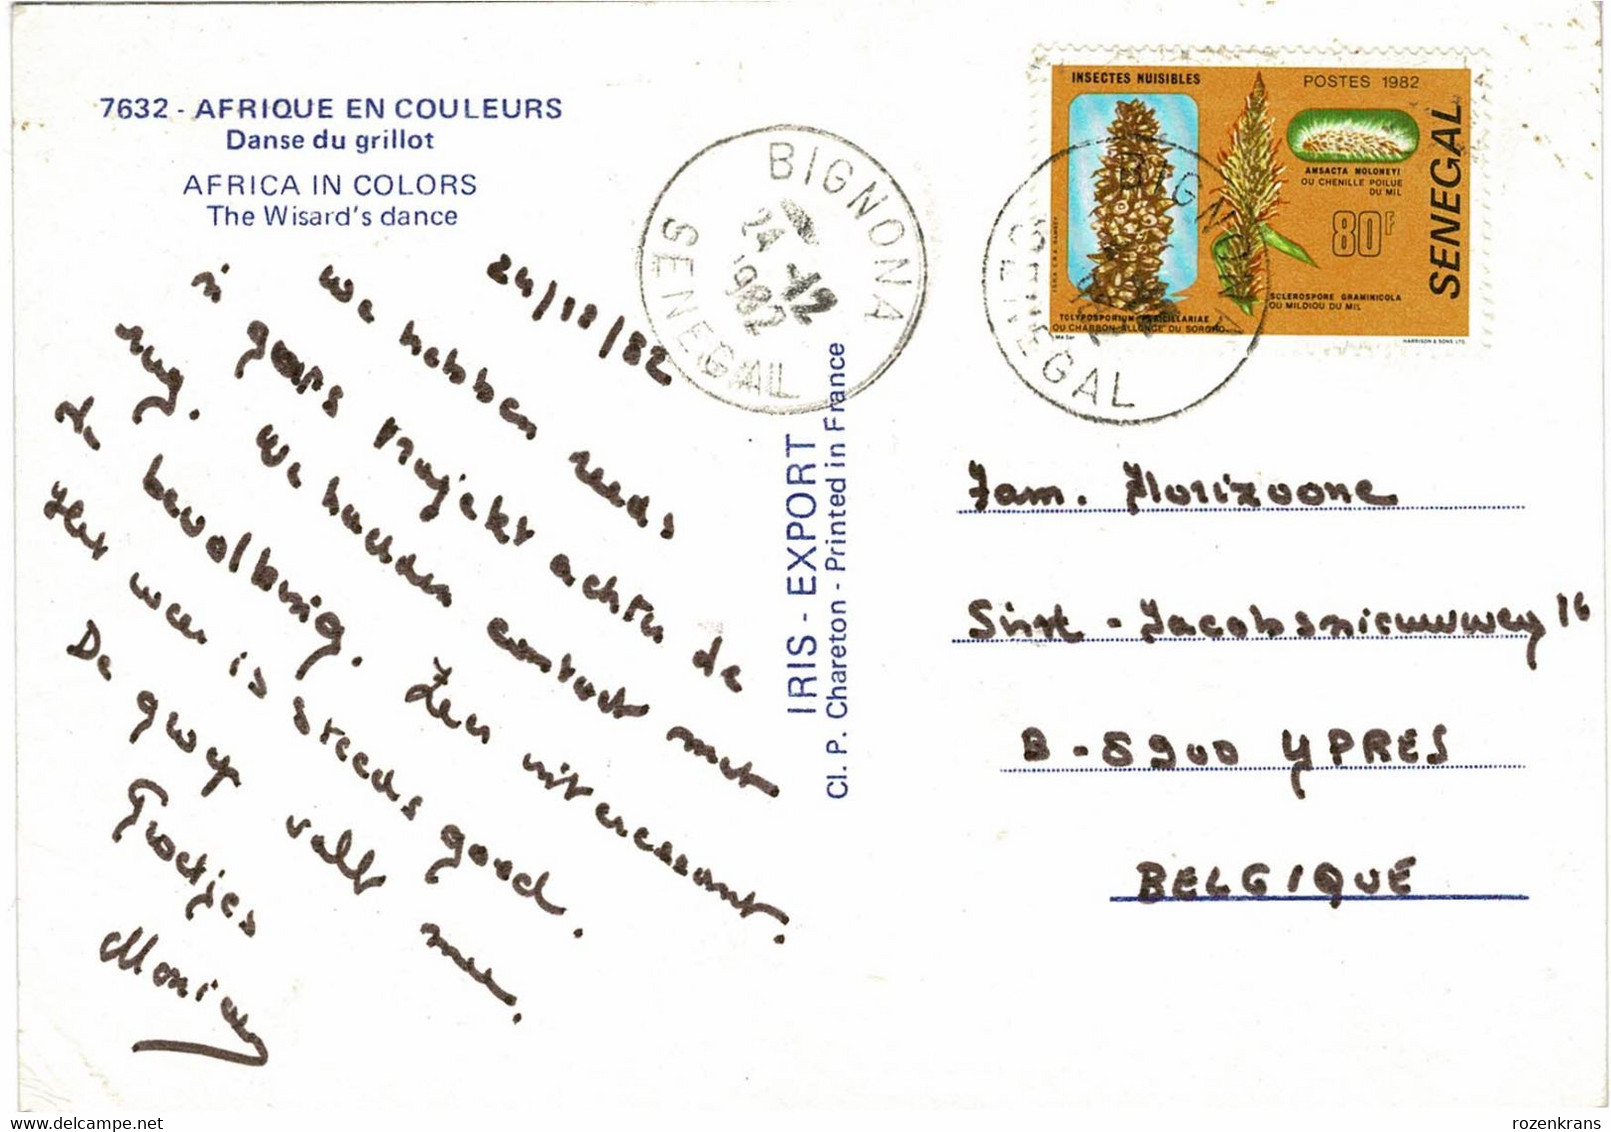 7632 - AFRIQUE EN COULEURS
Danse du grillot
AFRICA IN COLORS
The Wisard's dance
24/12/82
We hebben reeds
'n gans projekt achter de
rug. We hadden contact met
de bevolking. Zeer interessant.
Het weer is steeds goed.
De groep valt mee.
Groetjes
IRIS - EXPORT
Cl. P. Chareton - Printed in France
BIGNONA
24 -12
1982
SENEGAL
INSECTES NUISIBLES
POSTES 1982
SENEGAL
AMSACTA MOLONEYI
OU CHENILLE POILUE
DU MIL
80F
SCLEROSPORE GRAMINICOLA
OU MILDIOU DU MIL
TOLYPOSPORIUM PENICILLARIAE
OU CHARBON ALLONGE DU SORGHO
HARRISON & SONS LTD.
BIGNONA
SENEGAL
Fam. Florizoone
Sint - Jacobsnieuwweg 16
B - 8900 YPRES
BELGIQUE
rozenkrans